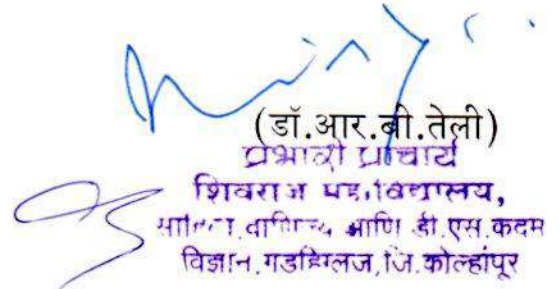 (डॉ.आर.बी.तेली)
प्रभारी प्राचार्य
शिवराज महाविद्यालय,
वाणिज्य आणि डी.एस.कदम
विज्ञान, गडहिंग्लज, जि.कोल्हापूर